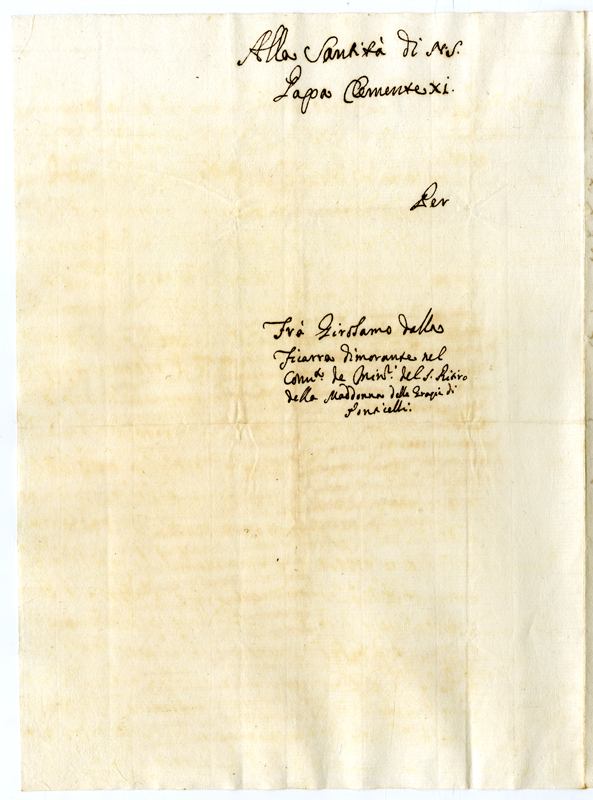 Alla Santità di N.S.
Papa Clemente xi.
Per
Frà Girolamo dalla
Ficarra dimorante nel
Conv.to de Min.ri del S. Ritiro
della Maddonna delle Grazie di
Ponticelli.